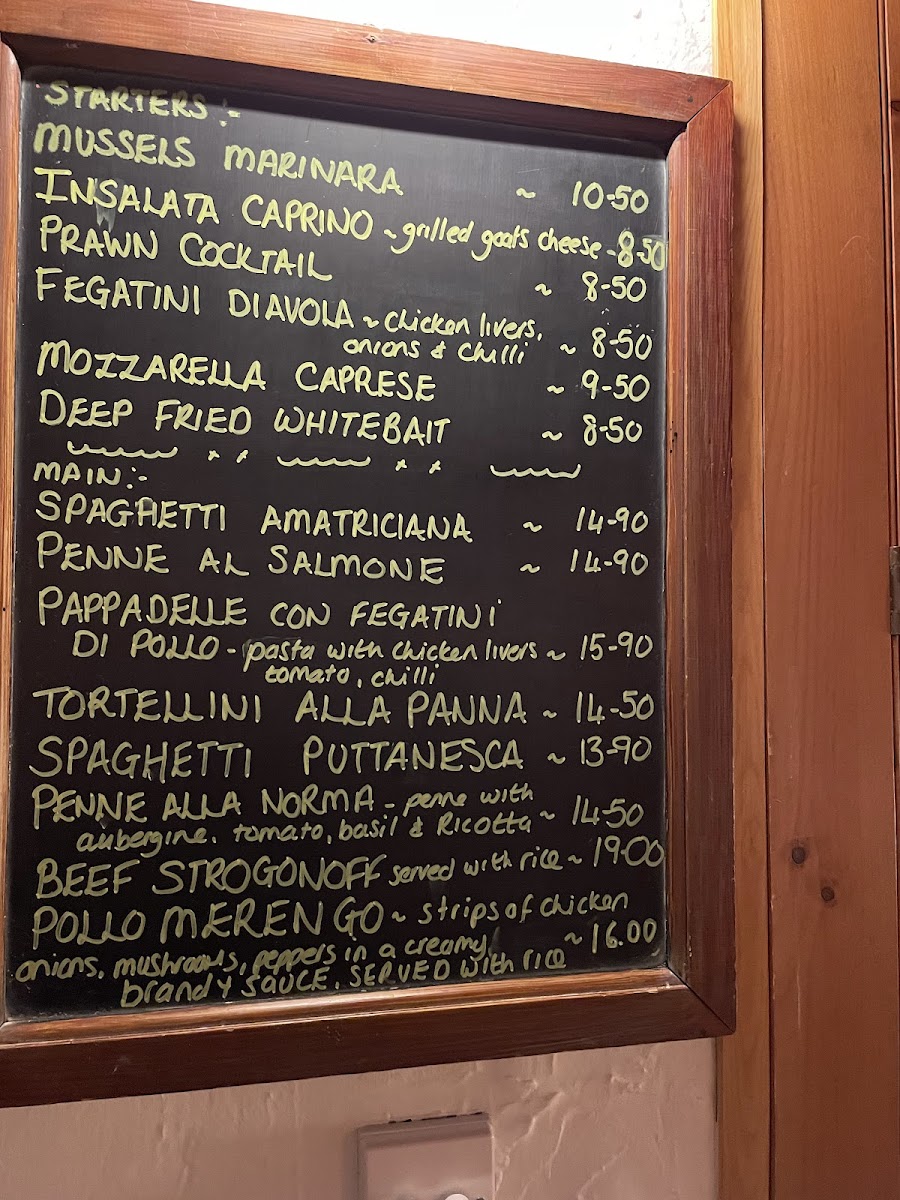 STARTERS:-
MUSSELS MARINARA ~ 10-50
INSALATA CAPRINO ~ grilled goats cheese - 8-50
PRAWN COCKTAIL ~ 8-50
FEGATINI DIAVOLA ~ chicken livers,
onions & chilli ~ 8-50
MOZZARELLA CAPRESE ~ 9-50
DEEP FRIED WHITEBAIT ~ 8-50
MAIN:-
SPAGHETTI AMATRICIANA ~ 14-90
PENNE AL SALMONE ~ 14-90
PAPPADELLE CON FEGATINI
DI POLLO - pasta with chicken livers ~ 15-90
tomato, chilli
TORTELLINI ALLA PANNA ~ 14-50
SPAGHETTI PUTTANESCA ~ 13-90
PENNE ALLA NORMA - penne with
aubergine, tomato, basil & Ricotta ~ 14-50
BEEF STROGONOFF served with rice ~ 19-00
POLLO MERENGO ~ strips of chicken
onions, mushrooms, peppers in a creamy ~ 16.00
brandy SAUCE, SERVED with rice